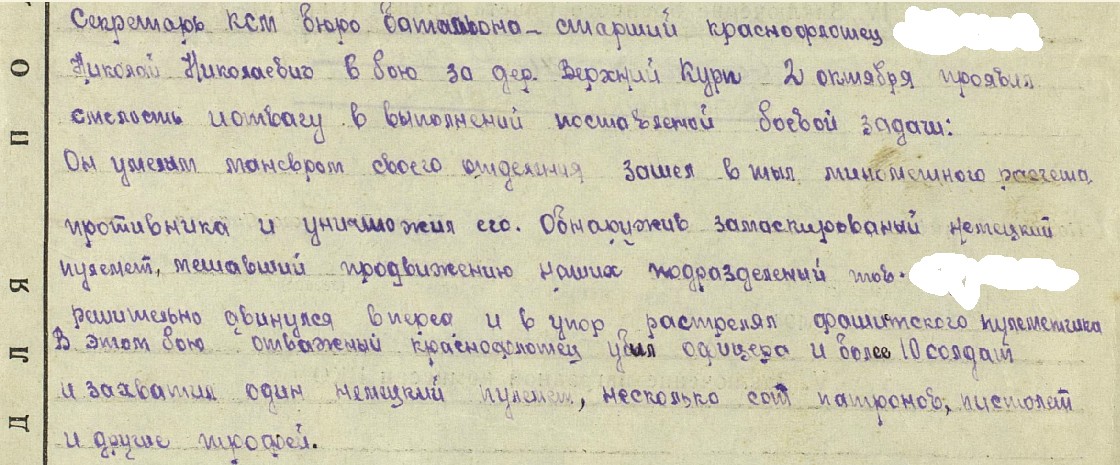 Секретарь КСМ бюро батальона - старший краснофлотец
Николай Николаевич в бою за дер. Верхний Курп 2 октября проявил
смелость и отвагу в выполнений поставленой боевой задачи:
Он умелым маневром своего отделения зашел в тыл минометного расчета
противника и уничтожил его. Обнаружив замаскированый немецкий
пулемет, мешавший продвижению наших подразделений тов.
решительно двинулся вперед и в упор растрелял фашитского пулеметчика
В этом бою отважный краснофлотец убил офицера и более 10 солдат
и захватил один немецкий пулемет, несколько сот патронов, пистолет
и другие трофей.
ДЛЯ ПО